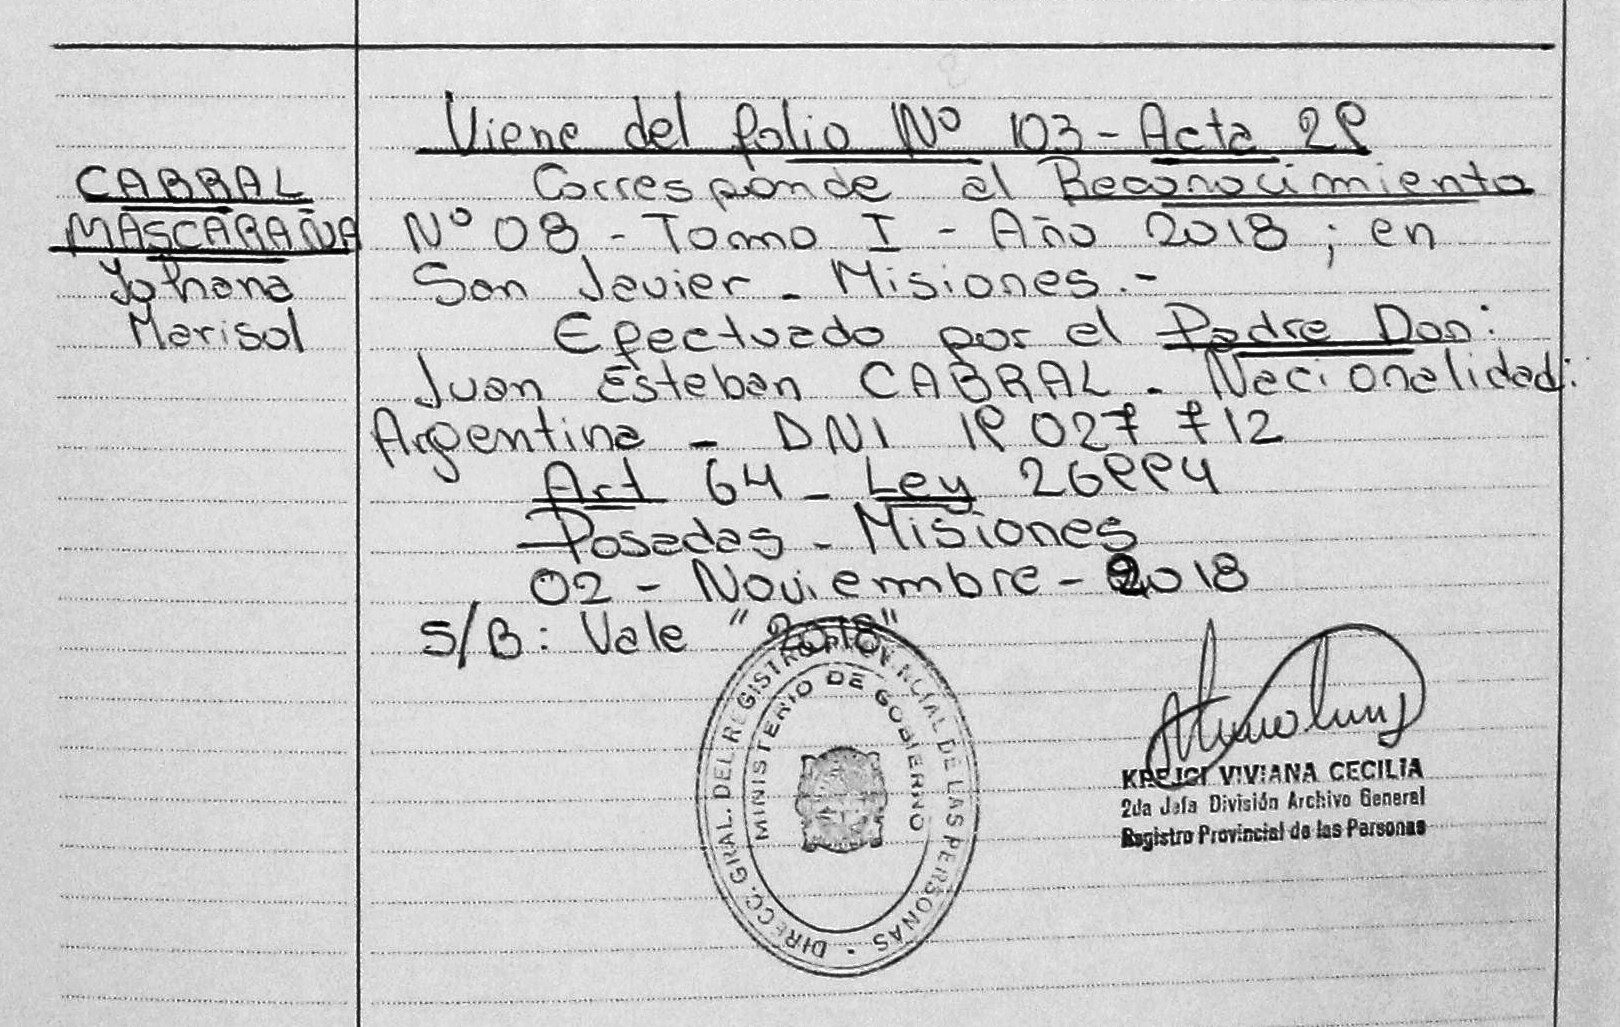 Viene del folio Nº 103 - Acta 29
CABRAL
MASCARAÑA
Johana
Marisol
Corresponde al Reconocimiento
Nº 08 - Tomo I - Año 2018 ; en
San Javier - Misiones.-
Efectuado por el Padre Don:
Juan Esteban CABRAL - Nacionalidad:
Argentina - DNI 19 027 712
Art 64 - Ley 26994
Posadas - Misiones
02 - Noviembre - 2018
S/B: Vale "2018"
DIRECC. GRAL. DEL REGISTRO PROVINCIAL DE LAS PERSONAS
MINISTERIO DE GOBIERNO
KREJCI VIVIANA CECILIA
2da Jefa División Archivo General
Registro Provincial de las Personas